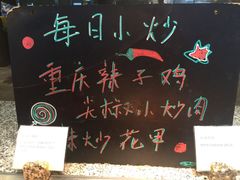 每日小炒
重庆辣子鸡
尖椒小炒肉
辣炒花甲